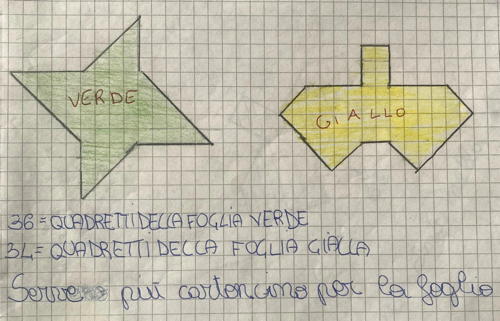 VERDE
GIALLO
36 = QUADRETTI DELLA FOGLIA VERDE
34 = QUADRETTI DELLA FOGLIA GIALLA
Serve più cartoncino per la foglia